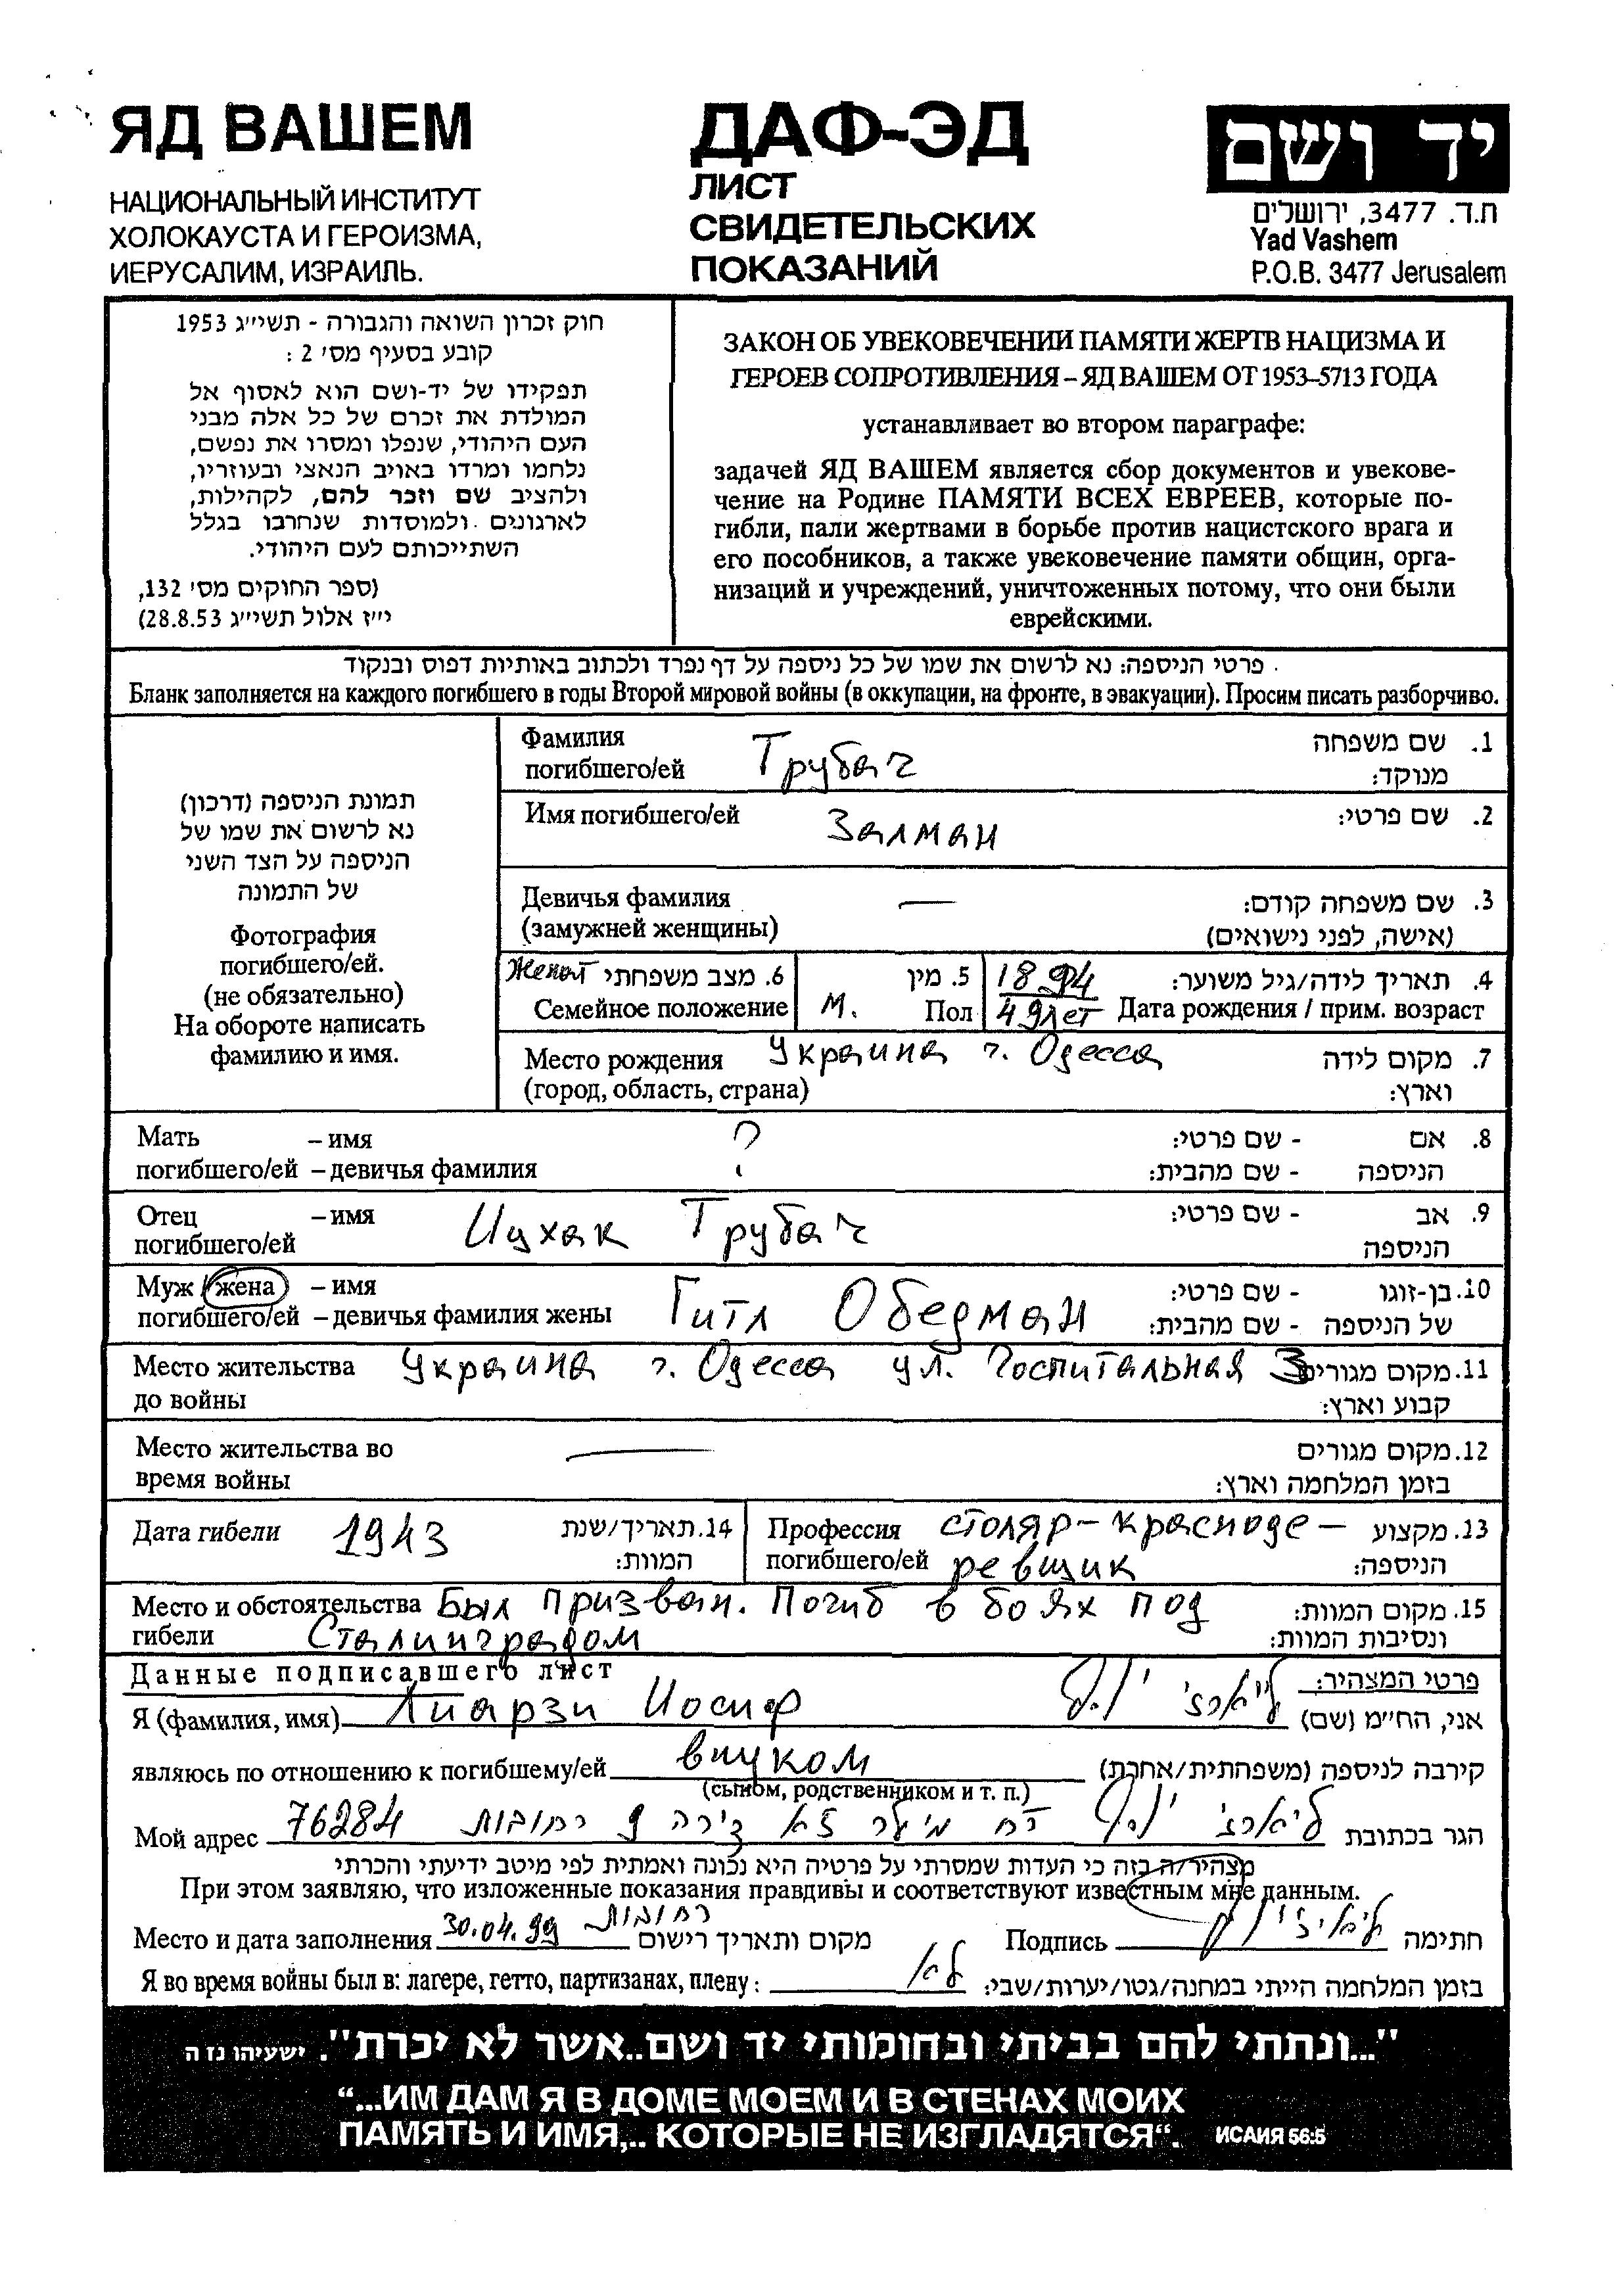 ЯД ВАШЕМ
НАЦИОНАЛЬНЫЙ ИНСТИТУТ
ХОЛОКАУСТА И ГЕРОИЗМА,
ИЕРУСАЛИМ, ИЗРАИЛЬ.
ДАФ-ЭД
ЛИСТ
СВИДЕТЕЛЬСКИХ
ПОКАЗАНИЙ
יד ושם
ת.ד. 3477, ירושלים
Yad Vashem
P.O.B. 3477 Jerusalem
חוק זכרון השואה והגבורה - תשי״ג 1953
קובע בסעיף מס׳ 2 :
תפקידו של יד-ושם הוא לאסוף אל
המולדת את זכרם של כל אלה מבני
העם היהודי, שנפלו ומסרו את נפשם,
נלחמו ומרדו באויב הנאצי ובעוזריו,
ולהציב שם וזכר להם, לקהילות,
לארגונים ולמוסדות שנחרבו בגלל
השתייכותם לעם היהודי.
(ספר החוקים מס׳ 132,
י״ז אלול תשי״ג 28.8.53)
ЗАКОН ОБ УВЕКОВЕЧЕНИИ ПАМЯТИ ЖЕРТВ НАЦИЗМА И
ГЕРОЕВ СОПРОТИВЛЕНИЯ – ЯД ВАШЕМ ОТ 1953–5713 ГОДА
устанавливает во втором параграфе:
задачей ЯД ВАШЕМ является сбор документов и увекове-
чение на Родине ПАМЯТИ ВСЕХ ЕВРЕЕВ, которые по-
гибли, пали жертвами в борьбе против нацистского врага и
его пособников, а также увековечение памяти общин, орга-
низаций и учреждений, уничтоженных потому, что они были
еврейскими.
פרטי הניספה: נא לרשום את שמו של כל ניספה על דף נפרד ולכתוב באותיות דפוס ובנקוד
Бланк заполняется на каждого погибшего в годы Второй мировой войны (в оккупации, на фронте, в эвакуации). Просим писать разборчиво.
תמונת הניספה (דרכון)
נא לרשום את שמו של
הניספה על הצד השני
של התמונה
Фотография
погибшего/ей.
(не обязательно)
На обороте написать
фамилию и имя.
Фамилия Трубач 1. שם משפחה
погибшего/ей מנוקד:
Имя погибшего/ей Залман 2. שם פרטי:
Девичья фамилия — 3. שם משפחה קודם:
(замужней женщины) (אישה, לפני נישואים)
Женат 6. מצב משפחתי 5. מין 1894 4. תאריך לידה/גיל משוער:
Семейное положение М. Пол 49 лет Дата рождения / прим. возраст
Место рождения Украина г. Одесса 7. מקום לידה
(город, область, страна) וארץ:
Мать – имя ? 8. אם - שם פרטי:
погибшего/ей – девичья фамилия הניספה - שם מהבית:
Отец – имя Ицхак Трубач 9. אב - שם פרטי:
погибшего/ей הניספה
Муж / жена – имя Гитл Обедман 10. בן-זוגו - שם פרטי:
погибшего/ей – девичья фамилия жены של הניספה - שם מהבית:
Место жительства Украина г. Одесса ул. Госпитальная 3 11. מקום מגורים
до войны קבוע וארץ:
Место жительства во — 12. מקום מגורים
время войны בזמן המלחמה וארץ:
Дата гибели 1943 14. תאריך/שנת המוות:
Профессия столяр-красноде- 13. מקצוע
погибшего/ей ревщик הניספה:
Место и обстоятельства Был призван. Погиб в боях под 15. מקום המוות:
гибели Сталинградом ונסיבות המוות:
Данные подписавшего лист פרטי המצהיר:
Я (фамилия, имя) Лиарзи Иосиф ליארזי יוסף אני, הח״מ (שם)
являюсь по отношению к погибшему/ей внуком קירבה לניספה (משפחתית/אחרת)
(сыном, родственником и т. п.)
Мой адрес 76284 רחובות דירה 9 ליארזי יוסף הגר בכתובת
מצהיר/ה בזה כי העדות שמסרתי על פרטיה היא נכונה ואמתית לפי מיטב ידיעתי והכרתי
При этом заявляю, что изложенные показания правдивы и соответствуют известным мне данным.
Место и дата заполнения 30.04.99 רחובות מקום ותאריך רישום Подпись חתימה
Я во время войны был в: лагере, гетто, партизанах, плену: לא בזמן המלחמה הייתי במחנה/גטו/יערות/שבי:
"...ונתתי להם בביתי ובחומותי יד ושם..אשר לא יכרת". ישעיהו נז ה
“...ИМ ДАМ Я В ДОМЕ МОЕМ И В СТЕНАХ МОИХ
ПАМЯТЬ И ИМЯ,.. КОТОРЫЕ НЕ ИЗГЛАДЯТСЯ“. ИСАИЯ 56:5